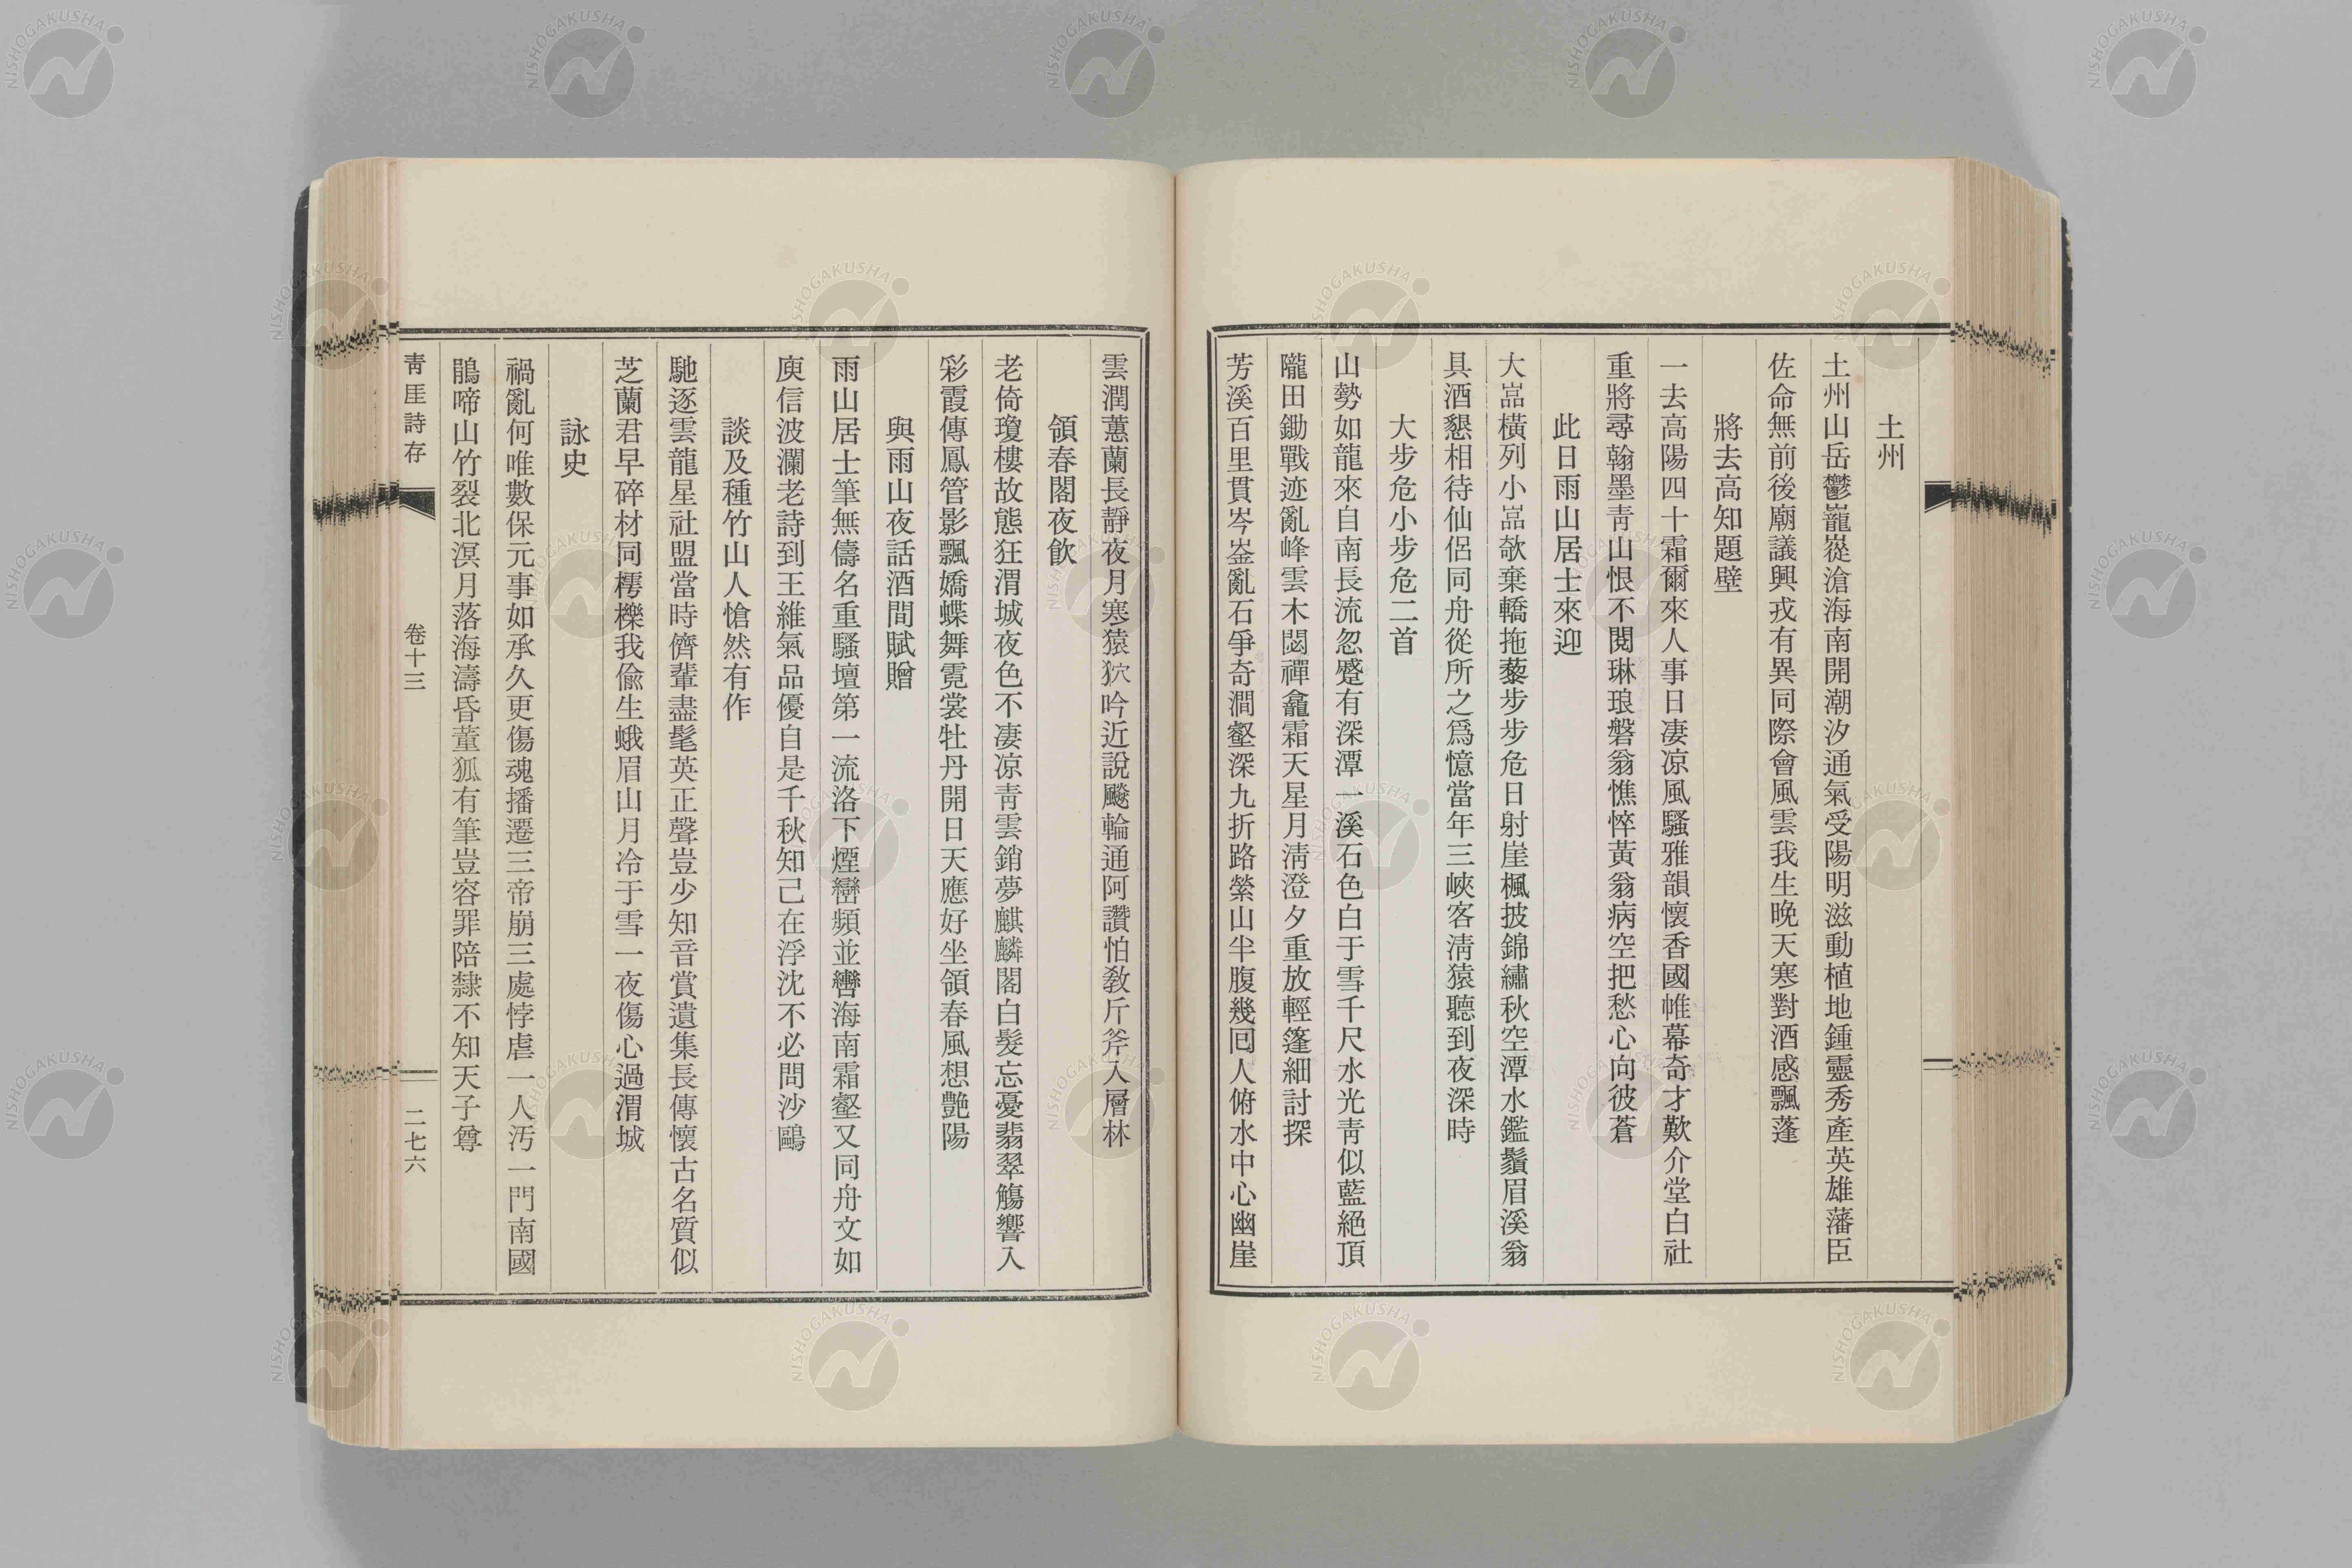 土州
土州山岳鬱巃嵸滄海南開潮汐通氣受陽明滋動植地鍾靈秀產英雄藩臣
佐命無前後廟議興戎有異同際會風雲我生晚天寒對酒感飄蓬
將去高知題壁
一去高陽四十霜爾來人事日凄凉風騷雅韻懷香國帷幕奇才歎介堂白社
重將尋翰墨靑山恨不閱琳琅磐翁憔悴黃翁病空把愁心向彼蒼
此日雨山居士來迎
大嵓橫列小嵓欹棄轎拖藜步步危日射崖楓披錦繡秋空潭水鑑鬚眉溪翁
具酒懇相待仙侶同舟從所之爲憶當年三峽客淸猿聽到夜深時
大步危小步危二首
山勢如龍來自南長流忽蹙有深潭一溪石色白于雪千尺水光靑似藍絕頂
隴田鋤戰迹亂峰雲木閟禪龕霜天星月淸澄夕重放輕篷細討探
芳溪百里貫岑崟亂石爭奇澗壑深九折路縈山半腹幾囘人俯水中心幽崖
雲潤蕙蘭長靜夜月寒猿狖吟近說飈輪通阿讚怕敎斤斧入層林
領春閣夜飮
老倚瓊樓故態狂渭城夜色不凄凉靑雲銷夢麒麟閣白髮忘憂翡翠觴響入
彩霞傳鳳管影飄嬌蝶舞霓裳牡丹開日天應好坐領春風想艷陽
與雨山夜話酒間賦贈
雨山居士筆無儔名重騷壇第一流洛下煙巒頻並轡海南霜壑又同舟文如
庾信波瀾老詩到王維氣品優自是千秋知己在浮沈不必問沙鷗
談及種竹山人愴然有作
馳逐雲龍星社盟當時儕輩盡髦英正聲豈少知音賞遺集長傳懷古名質似
芝蘭君早碎材同樗櫟我偸生蛾眉山月冷于雪一夜傷心過渭城
詠史
禍亂何唯數保元事如承久更傷魂播遷三帝崩三處悖虐一人汚一門南國
鵑啼山竹裂北溟月落海濤昏董狐有筆豈容罪陪隸不知天子尊
靑厓詩存 卷十三 二七六
NISHOGAKUSHA